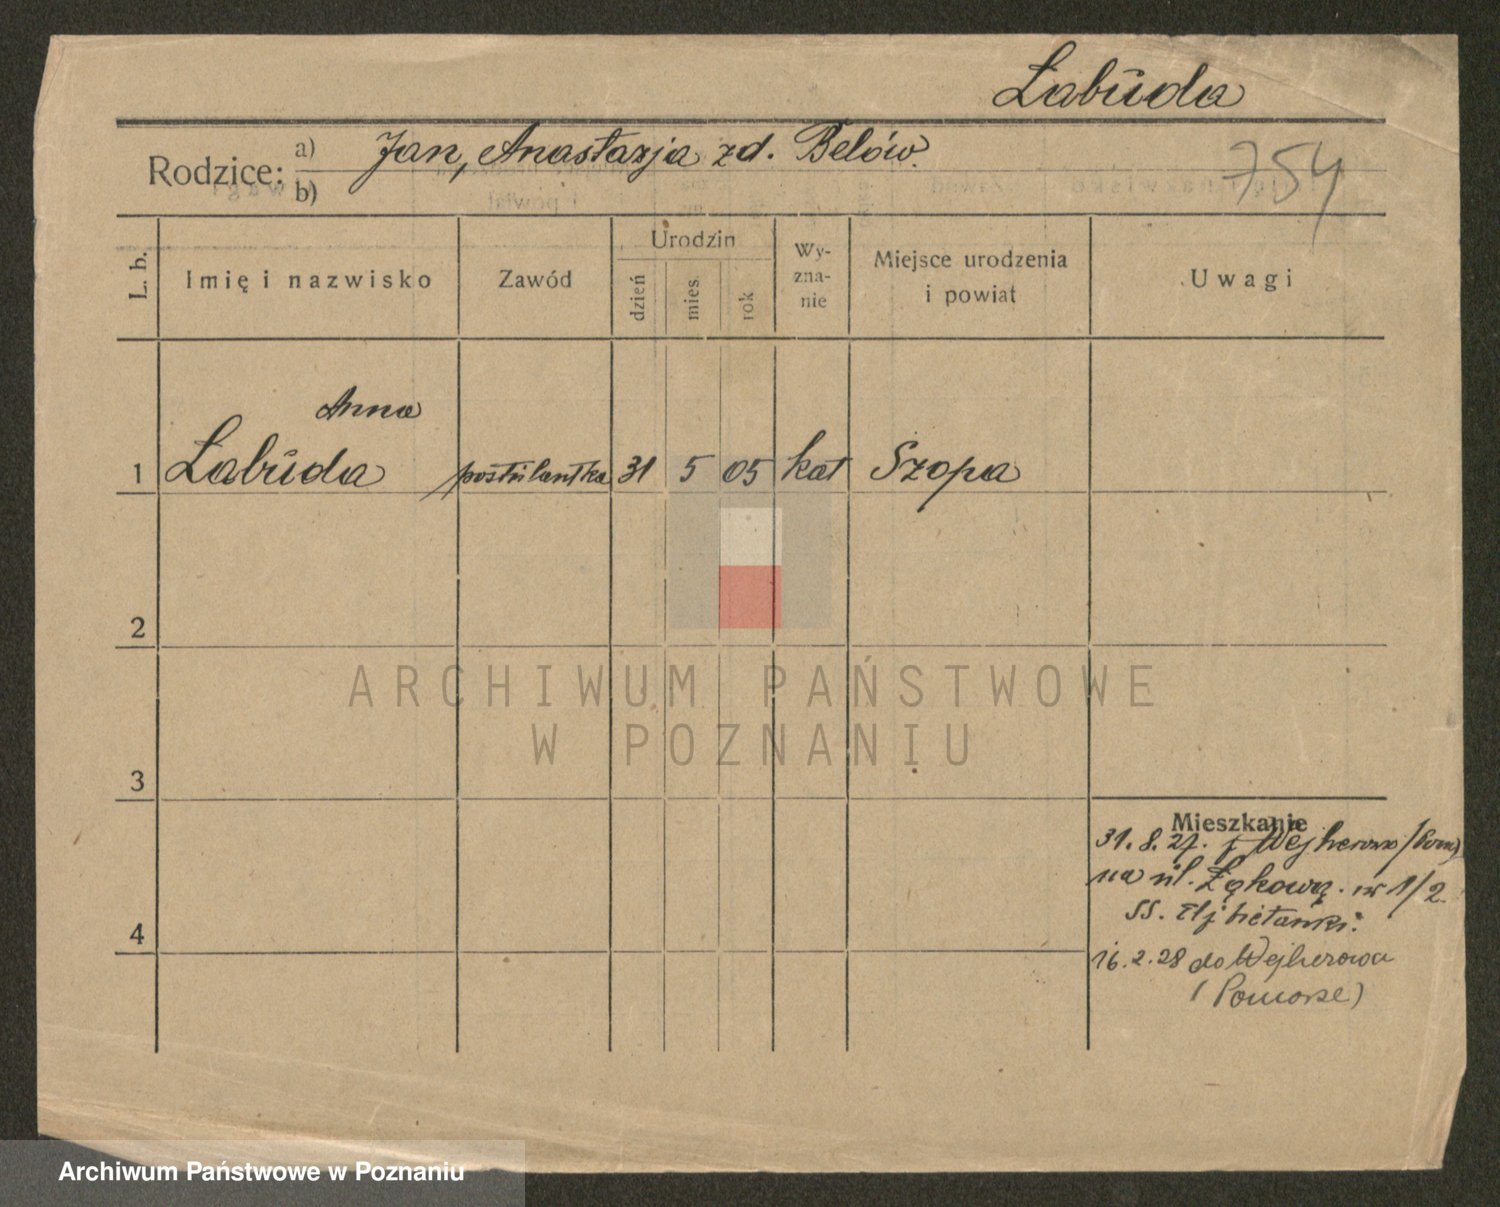 Łabuda
Rodzice: a) Jan, Anastazja zd. Belów.
b)
754
L. b.
Imię i nazwisko
Zawód
Urodzin
dzień
mies.
rok
Wy-
zna-
nie
Miejsce urodzenia
i powiat
Uwagi
Anna
1 Łabuda postulantka 31 5 05 kat Szopa
2
3
4
Mieszkanie
31. 8. 27. z Wejherowo /Pom)
na ul. Łąkową. nr 1/2
SS. Elżbietanki.
16. 2. 28 do Wejherowa
(Pomorze)
ARCHIWUM PAŃSTWOWE
W POZNANIU
Archiwum Państwowe w Poznaniu